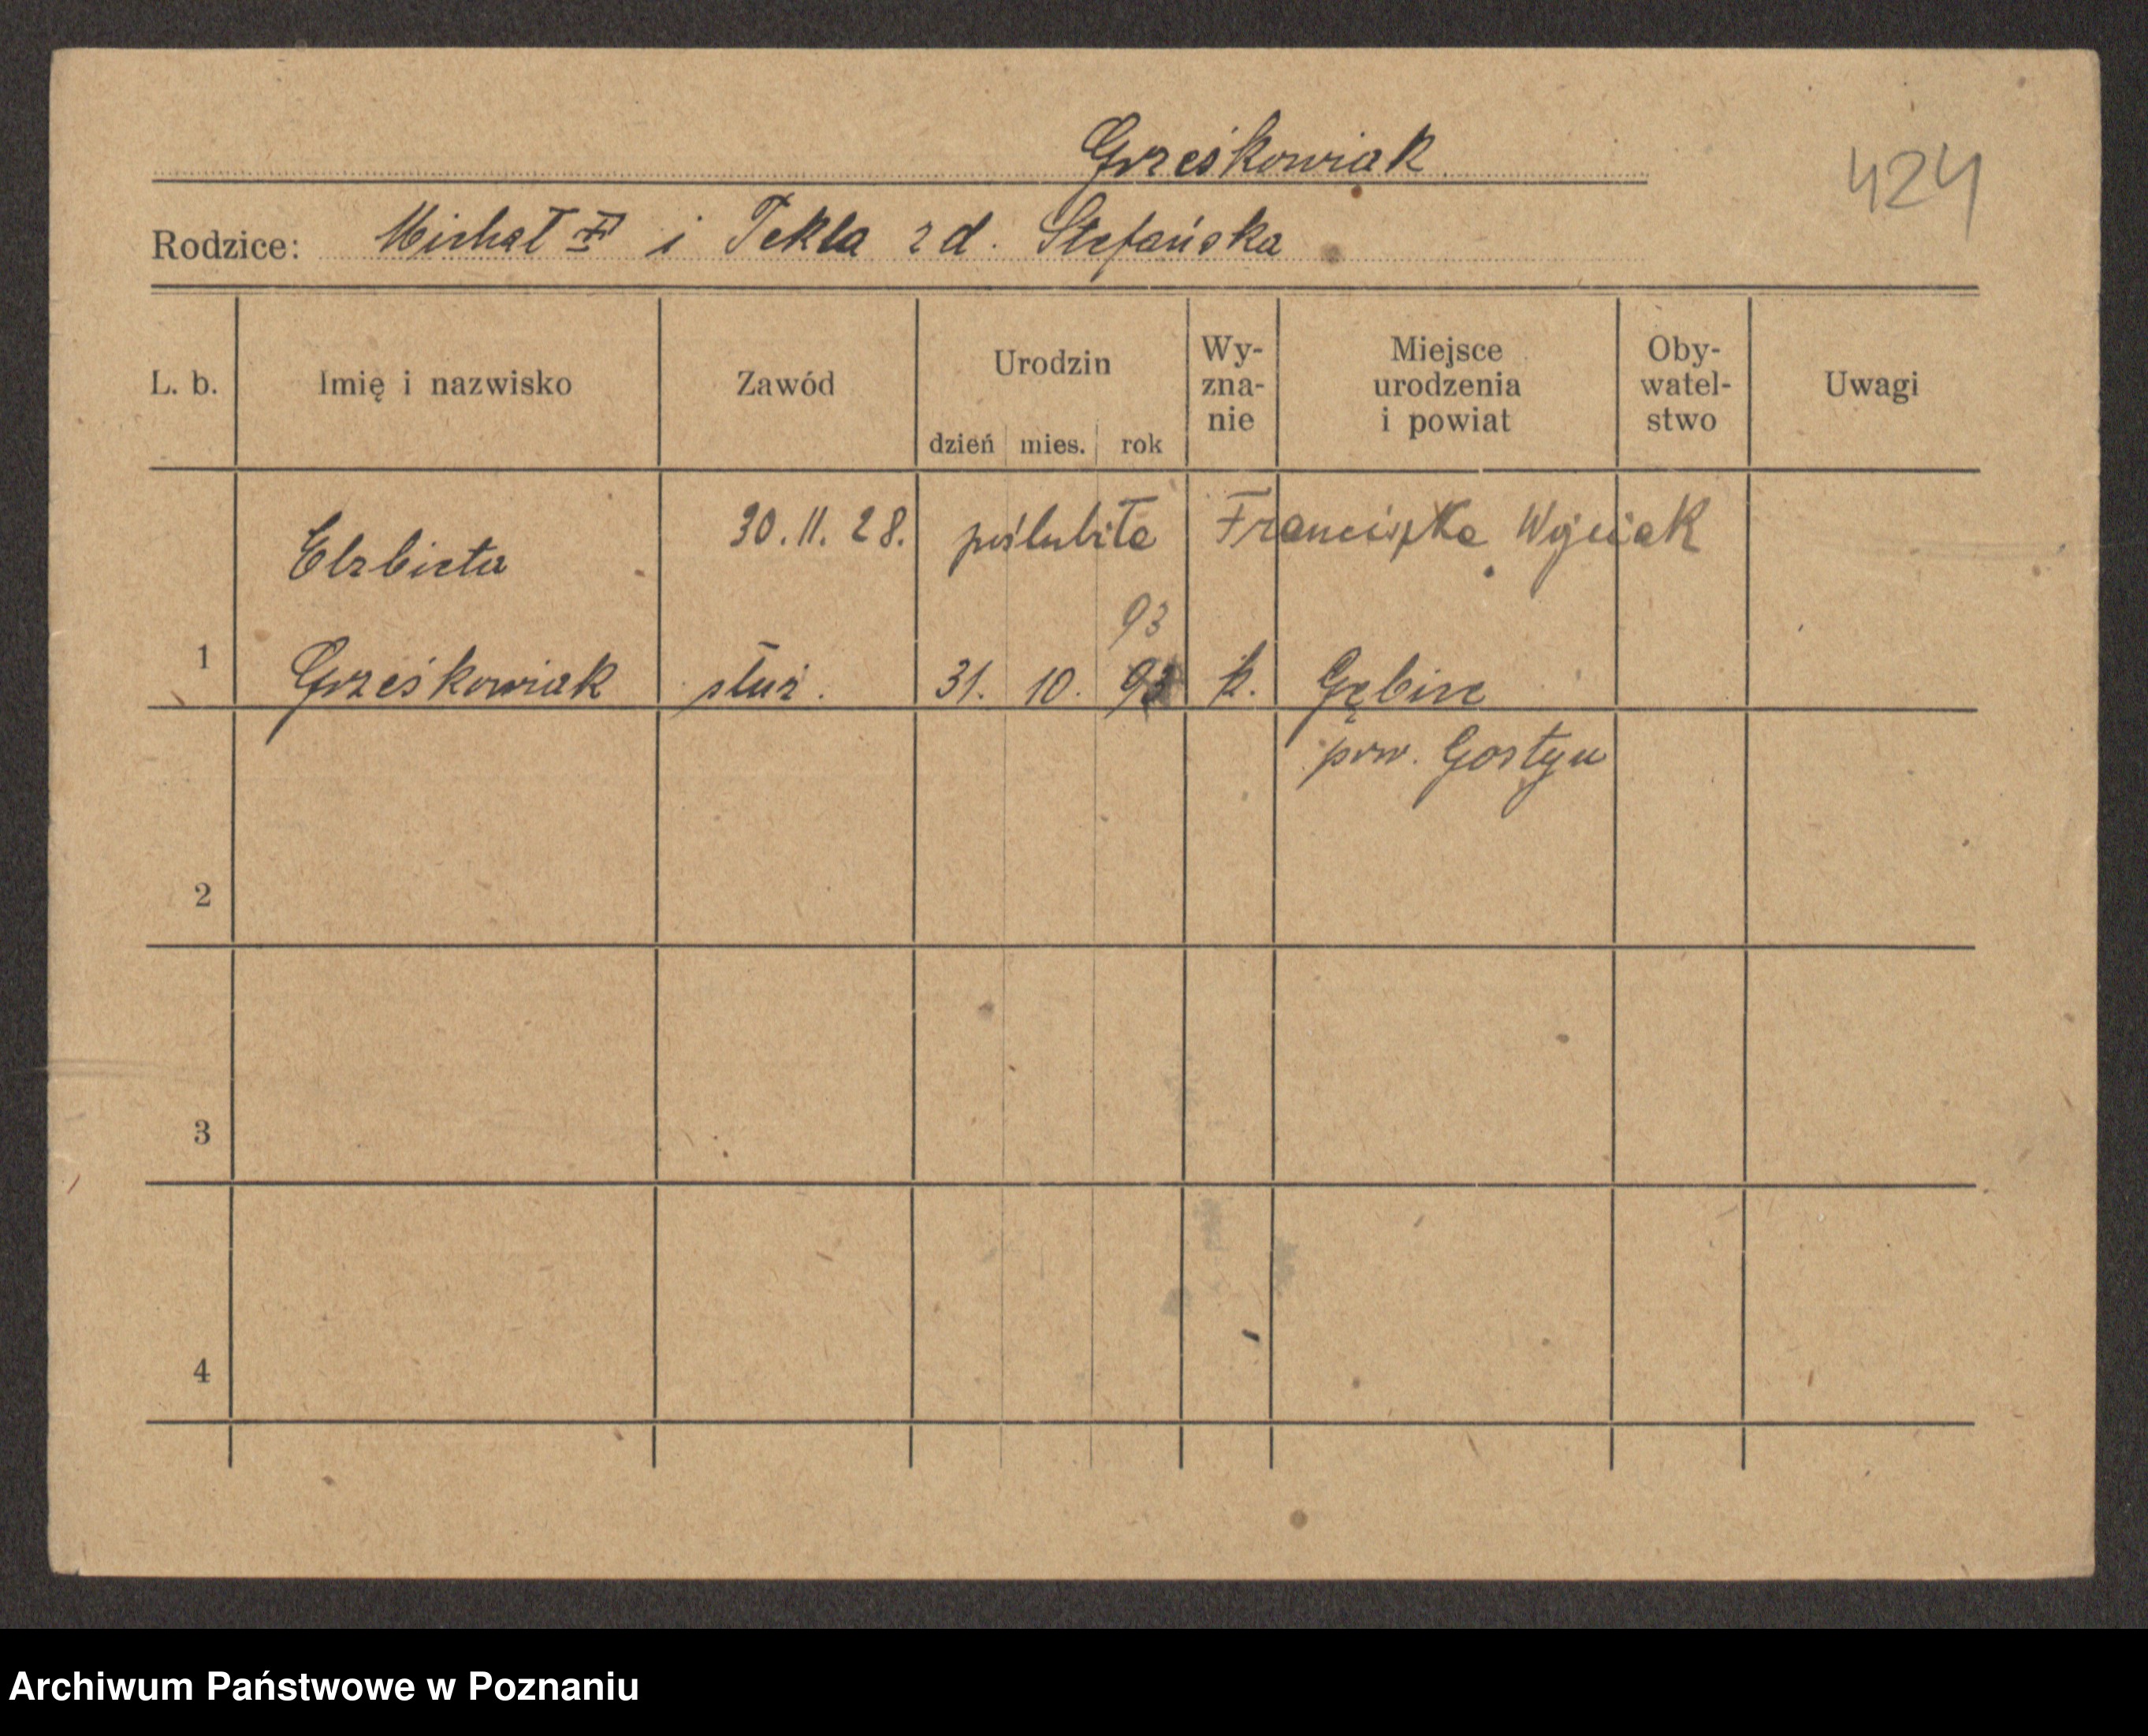 Grześkowiak
424
Rodzice: Michał i Tekla zd. Stefańska
L. b. Imię i nazwisko Zawód Urodzin dzień mies. rok Wy-zna-nie Miejsce urodzenia i powiat Oby-watel-stwo Uwagi
30. 11. 28. poślubiła Franciszka Wojciak
Elżbieta
93
1 Grześkowiak służ. 31. 10. 93 k. Gębice
pow. Gostyń
2
3
4
Archiwum Państwowe w Poznaniu